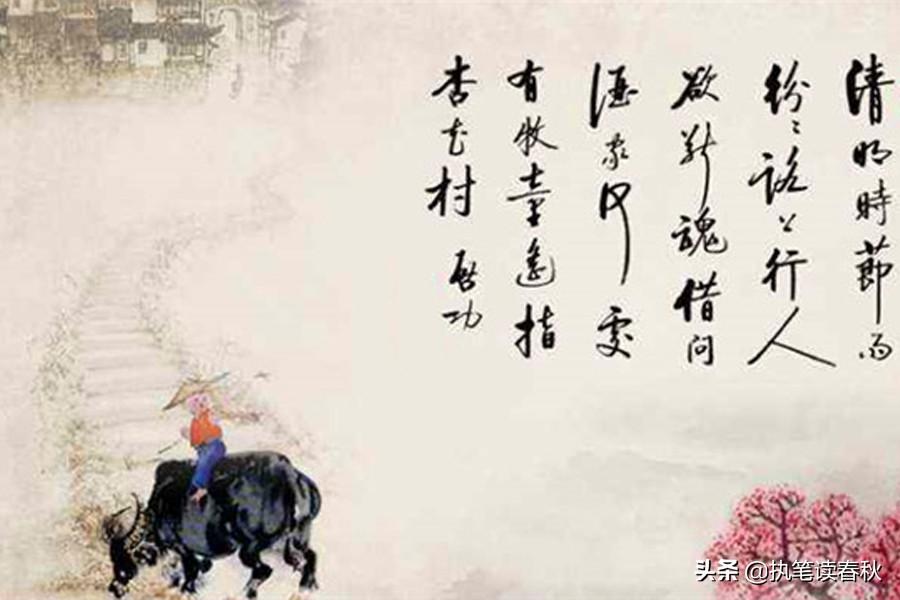 清明時節雨
紛々路上行人
欲斷魂借問
酒家何處
有牧童遙指
杏花村 啓功
头条 @执笔读春秋